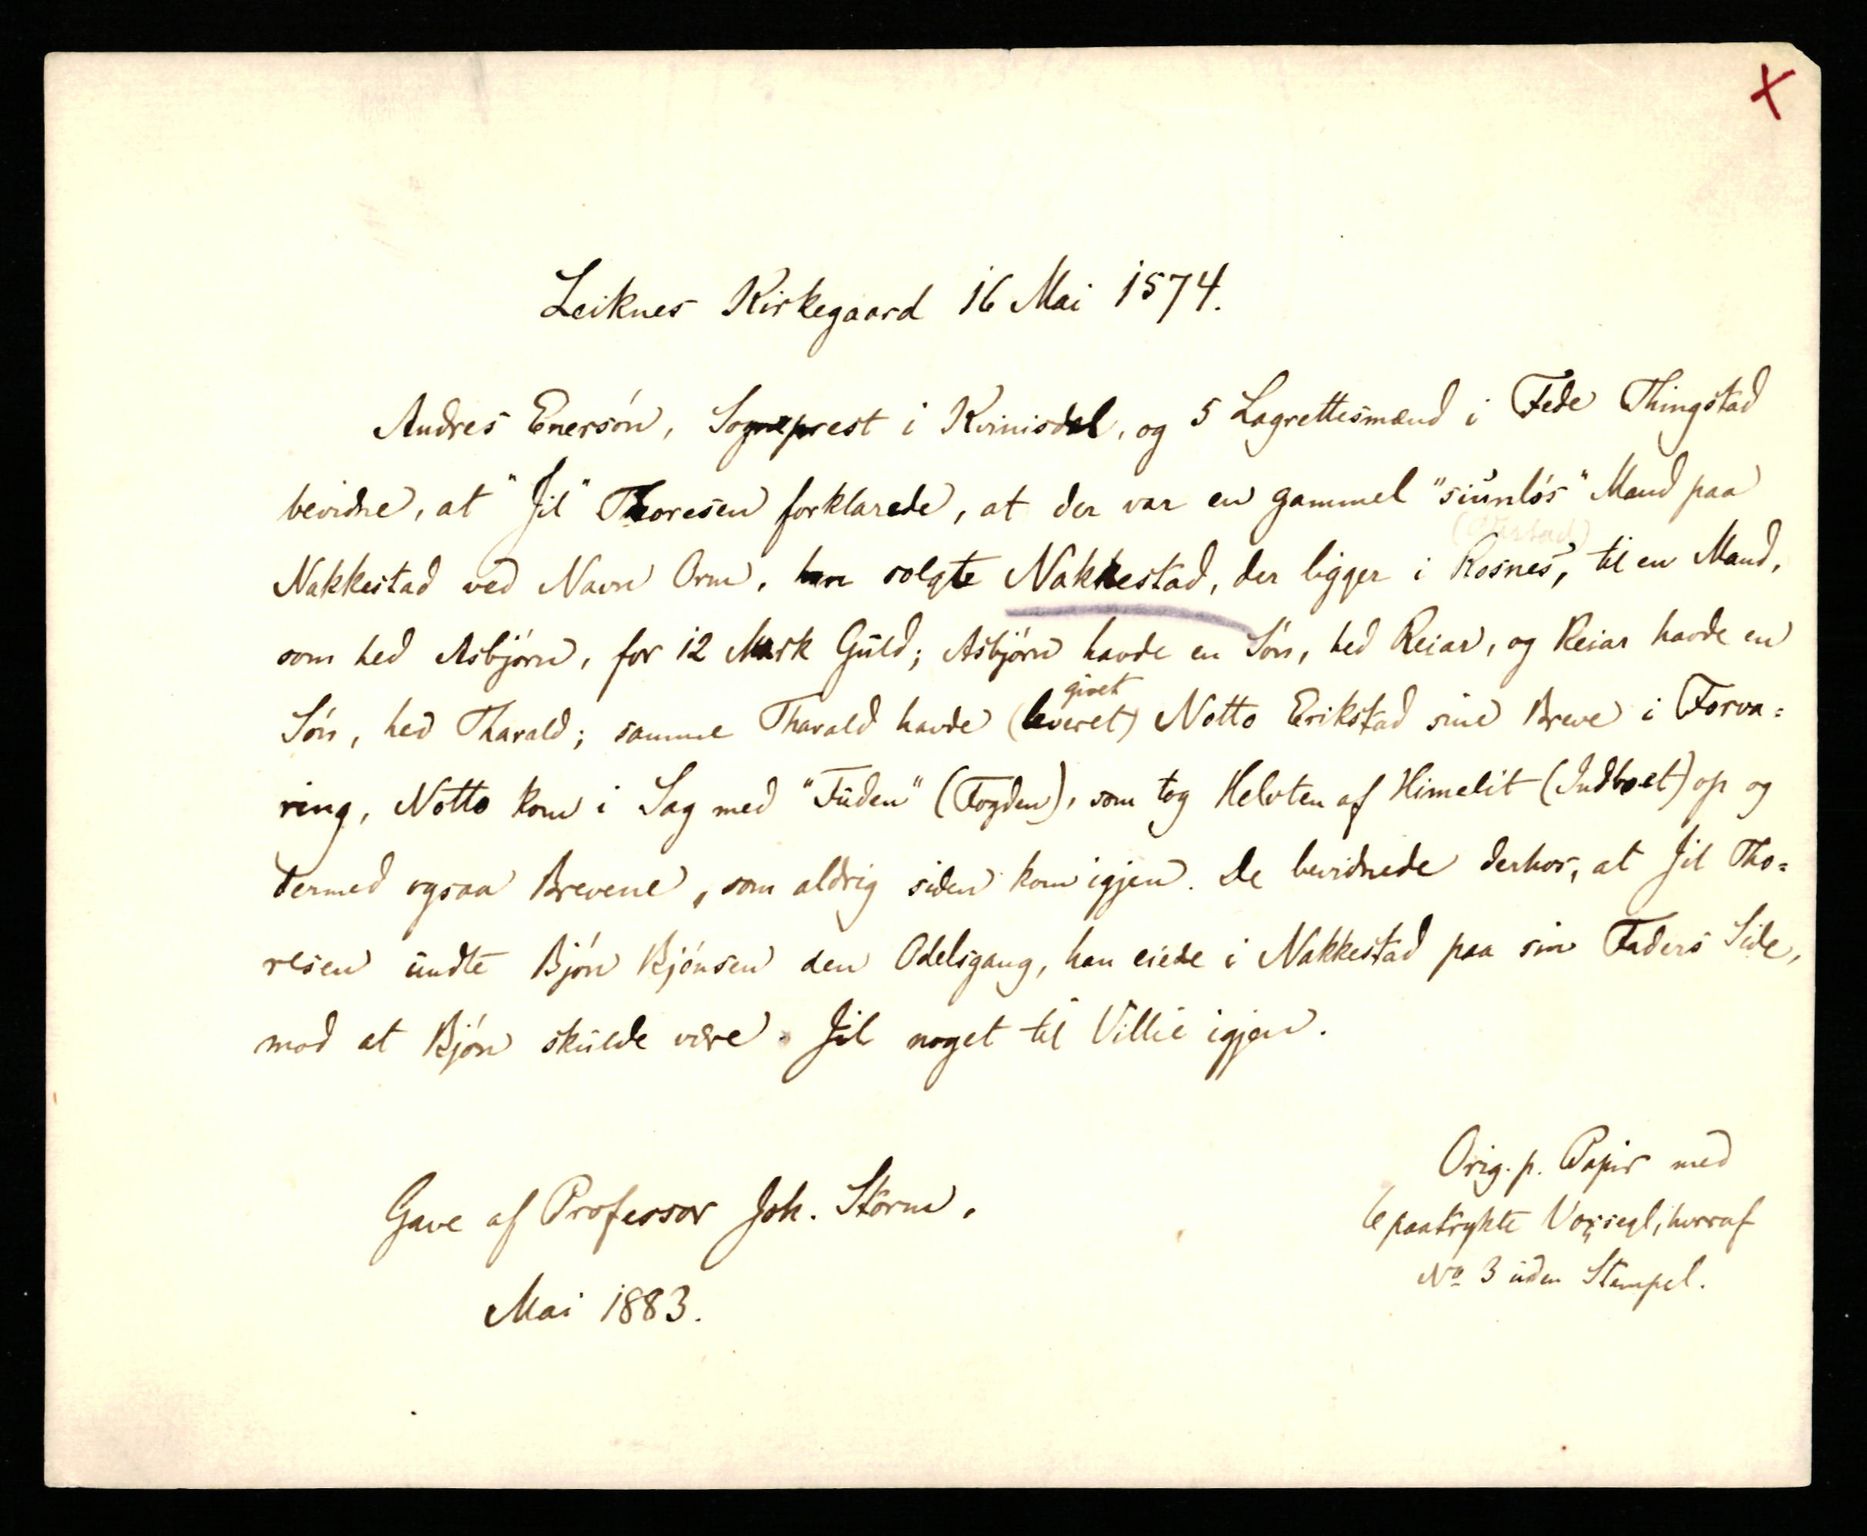 Leiknes Kirkegaard 16 Mai 1574.
Andres Enersón, Sogneprest i Kvinisdal, og 5 Lagrettesmænd i Fede Thingstad
bevidne, at "Jil" Thoresen forklarede, at der var en gammel "siunlós" Mand paa
Nakkestad ved Navn Orm, han solgte Nakkestad, der ligger i Rosnes, til en Mand,
som hed Asbjórn, for 12 Mark Guld; Asbjórn havde en Són, hed Reiar, og Reiar havde en
givet
Són, hed Tharald; samme Tharald havde (leveret) Notto Erikstad sine Breve i Forva=
ring, Notto kom i Sag med "Fuden" (Fogden), som tog Helvten af Himelit (Indboet) op og
dermed ogsaa Brevene, som aldrig siden kom igjen. De bevidnede derhos, at Jil Tho=
resen undte Bjórn Bjónsen den Odelsgang, han eiede i Nakkestad paa sin Faders Side,
mod at Bjórn skulde være Jil noget til Villie igjen.
Orig. p. Papir med
6 paatrykte Voxsegl, hvoraf
No 3 uden Stempel.
Gave af Professor Joh. Storm,
Mai 1883.